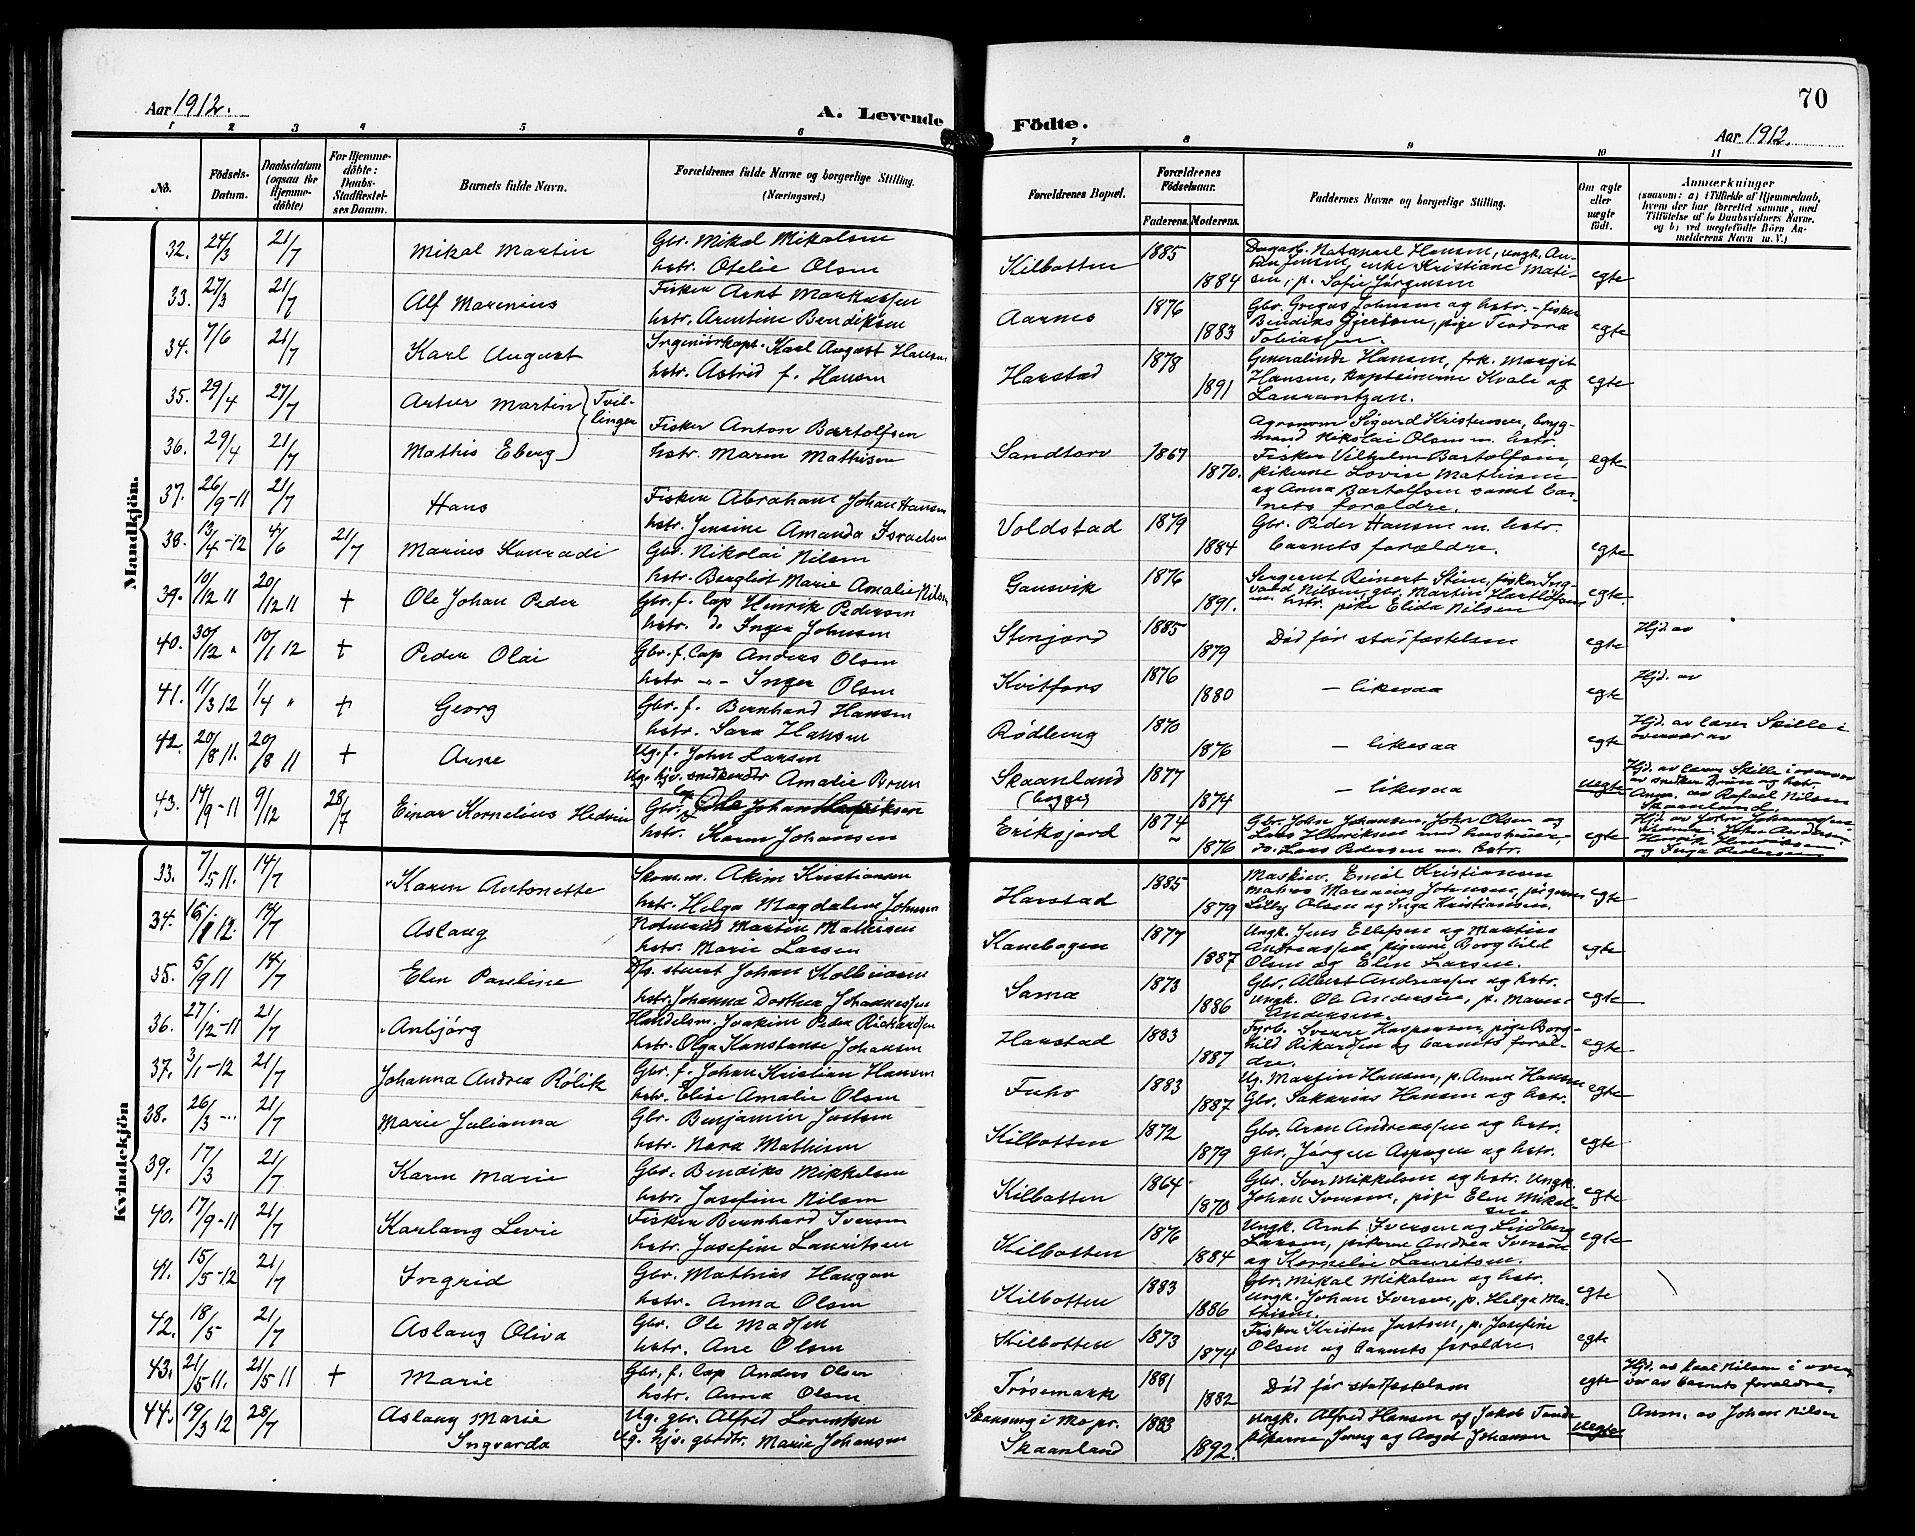 70
Aar 1912.
A. Levende
Födte.
Aar 1912.
1 2 3 4 5 6 7 8 9 10 11
No.
Födsels-Datum.
Daabsdatum (ogsaa for Hjemme-döbte)
For Hjemme-döbte: Daabs-Stadfæstel-ses Daaum.
Barnets fulde Navn.
Forældrenes fulde Navne og borgerlige Stilling. (Næringsvei.)
Forældrenes Bopæl.
Forældrenes Födselsaar.
Faderens. Moderens.
Faddernes Navne og borgerlige Stilling.
Om ægte eller uægte födt.
Anmærkninger
(saasom: a) i Tilfælde af Hjemmedaab, hvem der har forrettet samme, med Tilföielse af to Daabsvidners Navne, og b) ved uægtefödte Börn Anmelderens Navn m. V.)
Mandkjön.
32. 24/3 21/7 Mikal Martin Gbr. Mikal Mikalsen hstr. Otelie Olsen Kilbotten 1885 1884 Dagarb. Natanael Hansen, ungk. An- Jensen, enke Kristiane Mati- sen, p. Sofie Jørgensen egte
33. 27/3 21/7 Alf Marenius Fisker Arnt Markussen hstr. Arntine Bendiksen Aarnes 1876 1883 Gbr. Gregus Johnsen og hstr. - fisker Bendiks Gjertsen, pige Teodora Tobiassen. egte
34. 7/6 21/7 Karl August Ingeniørkapt. Karl August Hansen hstr. Astrid f. Hansen Harstad 1878 1891 Generalinde Hansen, frk. Margit Hansen, kapteinerne Kvale og Laurantzon. egte
35. 29/4 27/7 Artur Martin } Tvil-linger
36. 29/4 21/7 Mathis Eberg Fisker Anton Bartolfsen hstr. Maren Mathisen Sandtorv 1867 1870. Agronom Sigurd Kristensen, bryg- mand Nikolai Olsen m. hstr. Fisker Vilhelm Bartolfsen, pikerne Lovise Mathisen og Anna Bartolfsen samt bar- nets forældre. egte
37. 26/9-11 21/7 Hans Fisker Abraham Johan Hansen hstr. Jensine Amanda Israelsen Voldstad 1879 1884 Gbr. Peder Hansen m. hstr. barnets forældre. egte
38. 13/4-12 4/6 21/7 Marius Konradi Gbr. Nikolai Nilsen hstr. Bergliot Marie Amalie Nilsen Gansvik 1876 1891. Sergeant Reinert Stien, fisker Ing- vald Nilsen, gbr. Martin Hartløfsen m hstr. pike Elida Nilsen egte
39. 10/12 11 20/12 11 + Ole Johan Peder Gbr. f. Lap Henrik Pedersen hstr. do Inger Johnsen Stenjord 1885 1879 Død før stadfæstelsen egte Hjd. av
40. 30/12 " 10/1 12 + Peder Olai Gbr. f. Lap Anders Olsen hstr -"- Inger Olsen Kvitfors 1876 1880 - likesaa egte Hjd. av
41. 11/3 12 1/4 " + Georg Gbr. f. Bernhard Hansen hstr. Sara Hansen Rødberg 1870 1876 - likesaa egte Hjd. av lærer Skille i overvær av
42. 20/8 11. 20/8 11 + Arne Ug. f. John Larsen Ug. hjv. snedkerdtr Amalie Brun Skaanland (bygge) 1877 1874 - likesaa uegte Hjd. av lærer Skille i overvær av snedker Brun og hstr. Anm. av Rafael Nilsen Skaanland.
43. 14/9-11 9/12 28/7 Einar Kornelius Hedvin Gbr. Lap Ole Johan Henriksen hstr. Karen Johansen Eriksjord 1874 1876 Gbr. John Johansen, John Olsen og Lars Henriksen med hustruer, Lars Pedersen m. hstr. egte Hjd. av John Johannessen John Andersen, Henrik Henriksen og Inga Pedersen
Kvindekjön
33. 7/5 11. 14/7 Karen Antonette Skom.m. Akim Kristiansen hstr. Helga Magdalene Johnsen Harstad 1885 1879 Maskin. Emil Kristiansen matros Marenius Johnsen, pigerne Lilly Olsen og Inga Kristiansen. egte
34. 16/1 12. 14/7 Aslaug Rotmand Martin Mathisen hstr. Marie Larsen Kanebogen 1877 1887 Ungk. Jens Ellefsen og Mathis Andreassen, pigerne Borghild Olsen og Elin Larsen. egte
35. 5/9 11 14/7 Elen Pauline D/s. stuert Johan Kolbinsen hstr. Johanna Dorthea Johannessen Sama 1873 1886 Gbr. Albert Andreassen og hstr. ungk. Ole Andersen, p. Maren Andersen. egte
36. 27/12-11 21/7 Anbjørg Handelsm. Joakim Peder Richardsen hstr. Olga Konstanse Johansen Harstad 1883 1887 Fyrb. Sverre Kaspersen, pige Borg- hild Rikardsen og barnets foræl- dre. egte
37. 3/1-12 21/7 Johanna Andrea Rølik Gbr. f. Johan Kristian Hansen hstr. Elise Amalie Olsen Fuho 1883 1887 Ug. Martin Hansen, p. Anna Hansen Gbr. Sakarias Hansen og hstr. egte
38. 26/3 -" 21/7 Marie Julianna Gbr. Benjamin Jostsen hstr. Nora Mathisen Kilbotten 1872 1879 Gbr. Aron Andreassen og hstr. gbr. Jørgen Aspogen og hstr. egte
39. 17/3 21/7 Karen Marie Gbr. Bendiks Mikkelsen hstr. Josefine Nilsen Kilbotten 1864 1870 Gbr. Iver Mikkelsen og hstr. Ungk. Johan Iversen, pige Elen Mikal- sen egte
40. 17/9-11 21/7 Karlaug Levie Fisker Bernhard Iversen hstr. Josefine Lauritsen Kilbotten 1876 1884 Ungk. Arnt Iversen og Lindberg Larsen, pikerne Andrea Iversen og Kornelie Lauritsen. egte
41. 15/5-12 21/7 Ingrid Gbr. Mathias Haugan hstr. Anna Olsen Kilbotten 1883 1886 Gbr. Mikal Mikalsen og hstr. Ungk. Johan Iversen, p. Helga Ma- thisen. egte
42. 18/5 21/7 Aslaug Oliva Gbr. Ole Madsen hstr. Ane Olsen Kilbotten 1873 1874 Fisker Kristen Jostsen, p. Josefine Olsen og barnets forældre. egte
43. 21/5 11. 21/5 11 + Marie Gbr. f. Lap Anders Olsen hstr. Anna Olsen Trøsemark 1881 1882 Død før stadfæstelsen egte Hjd. av Karl Nilsen i over- vær av barnets forældre.
44. 19/3 12 28/7 Aslaug Marie Ingvarda Ug. gbr. Alfred Lorentsen Ug. hjv. gbrdtr. Marie Johansen Skaaning i Mo pr. Skaanland 1883 1892. Ungk. Alfred Hansen og Jakob Tande pikerne Jenny og Aagot Johansen uegte Anm. av Johan Nilsen